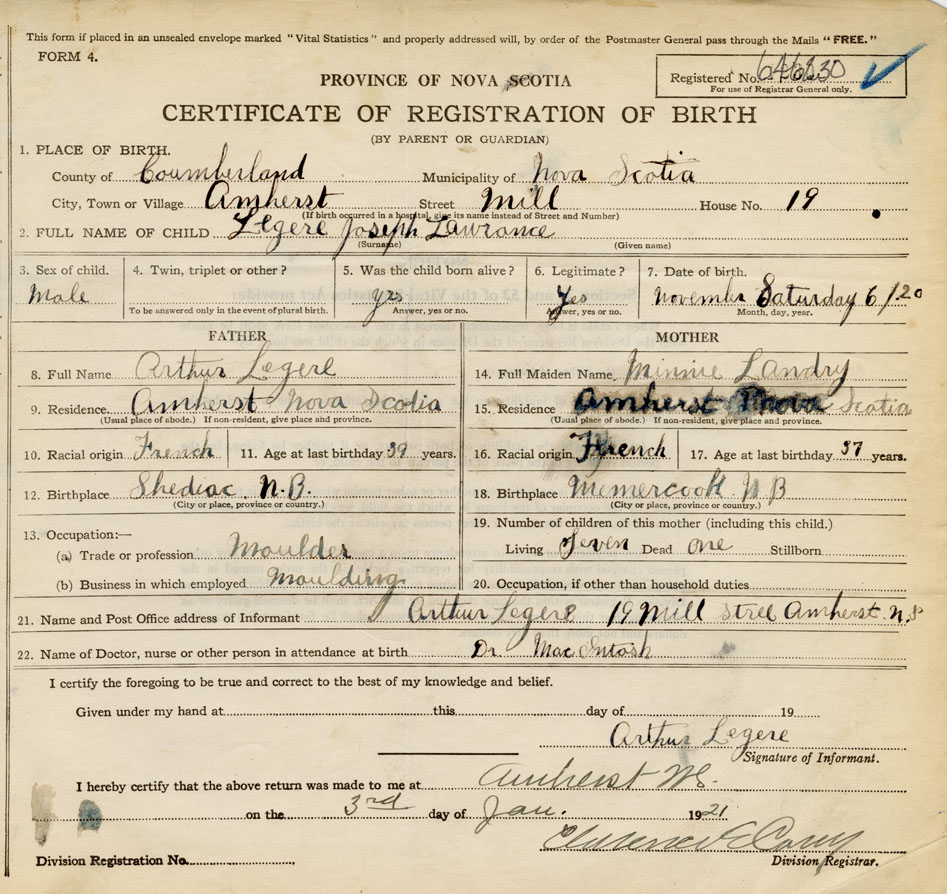 This form if placed in an unsealed envelope marked "Vital Statistics" and properly addressed will, by order of the Postmaster General pass through the Mails "FREE."
FORM 4.
PROVINCE OF NOVA SCOTIA
Registered No. 646830
For use of Registrar General only.
CERTIFICATE OF REGISTRATION OF BIRTH
(BY PARENT OR GUARDIAN)
1. PLACE OF BIRTH.
County of Coumberland Municipality of Nova Scotia
City, Town or Village Amherst Street Mill House No. 19
(If birth occurred in a hospital, give its name instead of Street and Number)
2. FULL NAME OF CHILD Legere Joseph Lawrance
(Surname) (Given name)
3. Sex of child. 4. Twin, triplet or other? 5. Was the child born alive? 6. Legitimate? 7. Date of birth.
Male yes Yes November Saturday 6 / 20
To be answered only in the event of plural birth. Answer, yes or no. Answer, yes or no. Month, day, year.
FATHER MOTHER
8. Full Name Arthur Legere 14. Full Maiden Name Minnie Landry
9. Residence Amherst Nova Scotia 15. Residence Amherst Nova Scotia
(Usual place of abode.) If non-resident, give place and province. (Usual place of abode.) If non-resident, give place and province.
10. Racial origin French 11. Age at last birthday 39 years. 16. Racial origin French 17. Age at last birthday 37 years.
12. Birthplace Shediac N.B. 18. Birthplace Memercook N B
(City or place, province or country.) (City or place, province or country.)
13. Occupation:— 19. Number of children of this mother (including this child.)
(a) Trade or profession Moulder Living Seven Dead one Stillborn
(b) Business in which employed Moulding 20. Occupation, if other than household duties
21. Name and Post Office address of Informant Arthur Legere 19 Mill Streel Amherst. N.S
22. Name of Doctor, nurse or other person in attendance at birth Dr. MacIntosh
I certify the foregoing to be true and correct to the best of my knowledge and belief.
Given under my hand at this day of 19
Arthur Legere
Signature of Informant.
I hereby certify that the above return was made to me at Amherst NS.
on the 3rd day of Jan. 1921
Clarence E Corry
Division Registration No. Division Registrar.